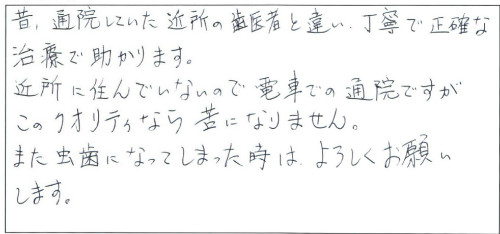 昔、通院していた近所の歯医者と違い、丁寧で正確な
治療で助かります。
近所に住んでいないので電車での通院ですが
このクオリティなら苦になりません。
また虫歯になってしまった時は、よろしくお願い
します。